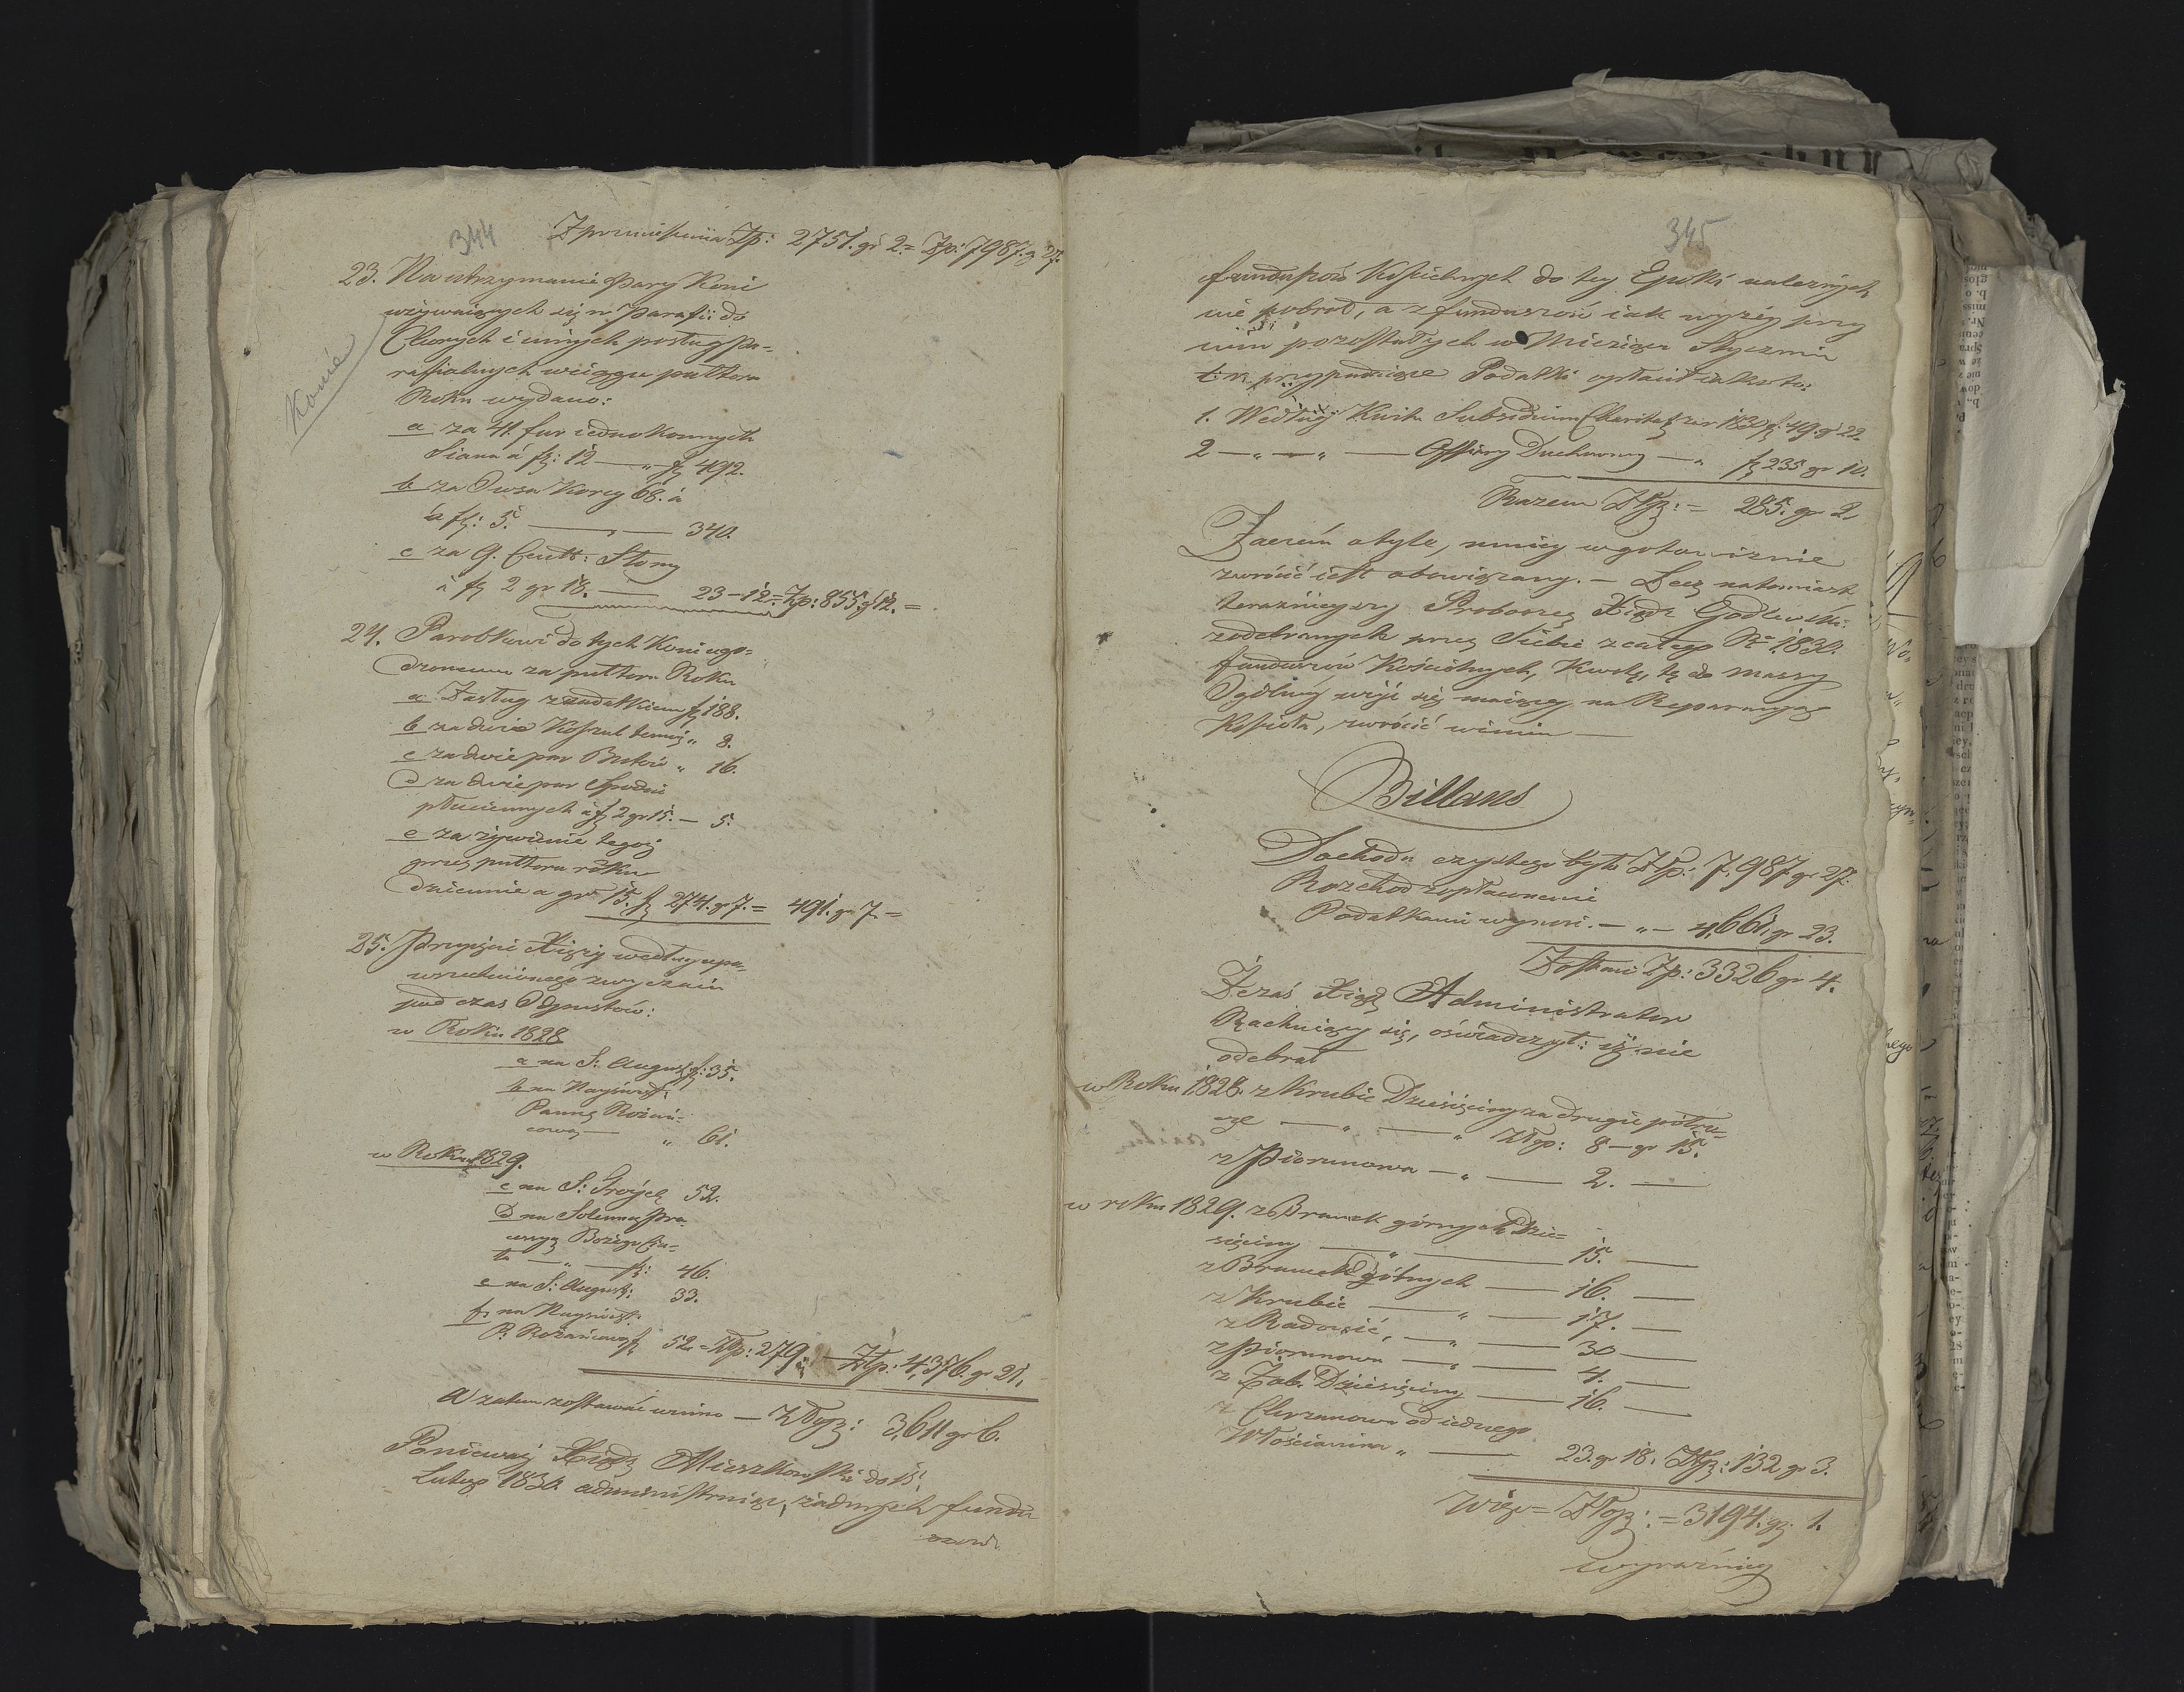 344
Z przeniesienia Zp: 2751. gr 2.= Zp: 7987. g 27.
23. Na utrzymanie Pary Koni
używaiących się w Parafii do
Chorych i innych posług Pa-
rafialnych w ciągu pułtora
Roku wydano:
Konie
a za 41. fur iednokonnych
Siana á fl: 12 — „ fl 492.
b za Owsa Korcy 68. á
á fl: 5. — „ — 340.
c za 9. Centr: Słomy
á fl 2 gr 18. — 23 – 12.= Zp: 855. g 12. =
24. Parobkowi do tych Koni ugo-
dzonemu za pułtora Roku
a Zasług z zadatkiem fl 188.
b za dwie Koszul temuż „ 8.
c za dwie par Butów „ 16.
d za dwie par Spodni
płuciennych á fl 2 gr 15. — 5.
e za żywienie tegoż
przez pułtora roku
dziennie a gr 15. fl 274. gr 7. = 491. gr 7. =
25. Przyięcie Xięży według upo-
wszechnionego zwyczaiu
pod czas Odpustów:
w Roku 1828
a na S: August fl: 35.
b na Nayświęt:
Pannę Różań-
cową — „ 61.
w Roku 1829.
c na S: Tróycę 52.
d na Solenną Pro
cessyą Bożego Cia-
ła — „ — fl: 46.
e na S: August: 33.
f na Nayświęt:
P. Różańcową fl 52. = Złp: 279. — Złp: 4,376. gr 21.
A zatem zostawać winno — Złp: 3,611 gr 6.
Ponieważ Xiądz Mieszkowski do 15.
Lutego 1830. administruiąc, żadnych fundu
szów
345
funduszów Kościelnych do tey Epoki należnych
nie pobrał, a z funduszów iak wyżéy przy
nim pozostałych w Miesiącu Styczniu
t: r. przypadaiące Podatki opłacił iako to:
1. Według Kwitu Subsidium Charitat: za r 1830 fl: 49. gr 22.
2 — „ — „ — Offiary Duchowny — „ fl 235 gr 10.
Razem Złp: = 285. gr 2.
Zaczém o tyle, mniéy w gotowiznie
zwrócić iest obowiązany. — Lecz natomiast
teraźnieyszy Proboszcz Xiądz Godlewski
z odebranych przez Siebie z całego Ru 1830.
funduszów Kościelnych, Kwotę, tę do massy
Ogólnéy użyć się maiącéy na Reparacyą
Kościoła, zwrócić winien —
Billans
Dochodu czystego było Złp: 7,987 gr 27.
Rozchod z opłaconemi
Podatkami wynosi. — „ — 4,661 gr 23.
Zostaie Zp: 3326 gr 4.
Że zaś Xiądz Administrator
Rachuiący się, oświadczył: iż nie
odebrał
w Roku 1828. z Krubic Dziesięciny za drugie półro-
cze — „ — „ Złp: 8 — gr 15.
z Piorunowa — „ — 2. —
w roku 1829. z Bramek górnych Dzie-
sięciny — „ — 15. —
z Bramek Dólnych — 16. —
z Krubic — „ — 17. —
z Radonic, — „ — 30 —
z Piorunowa — „ — 4. —
z Żab. Dziesięciny — 16. —
z Chrzanowa od iednego
Włościanina „ — 23. gr 18. Złp: 132 gr 3.
Więc = Złp: = 3194. gr 1.
wyraźniéy